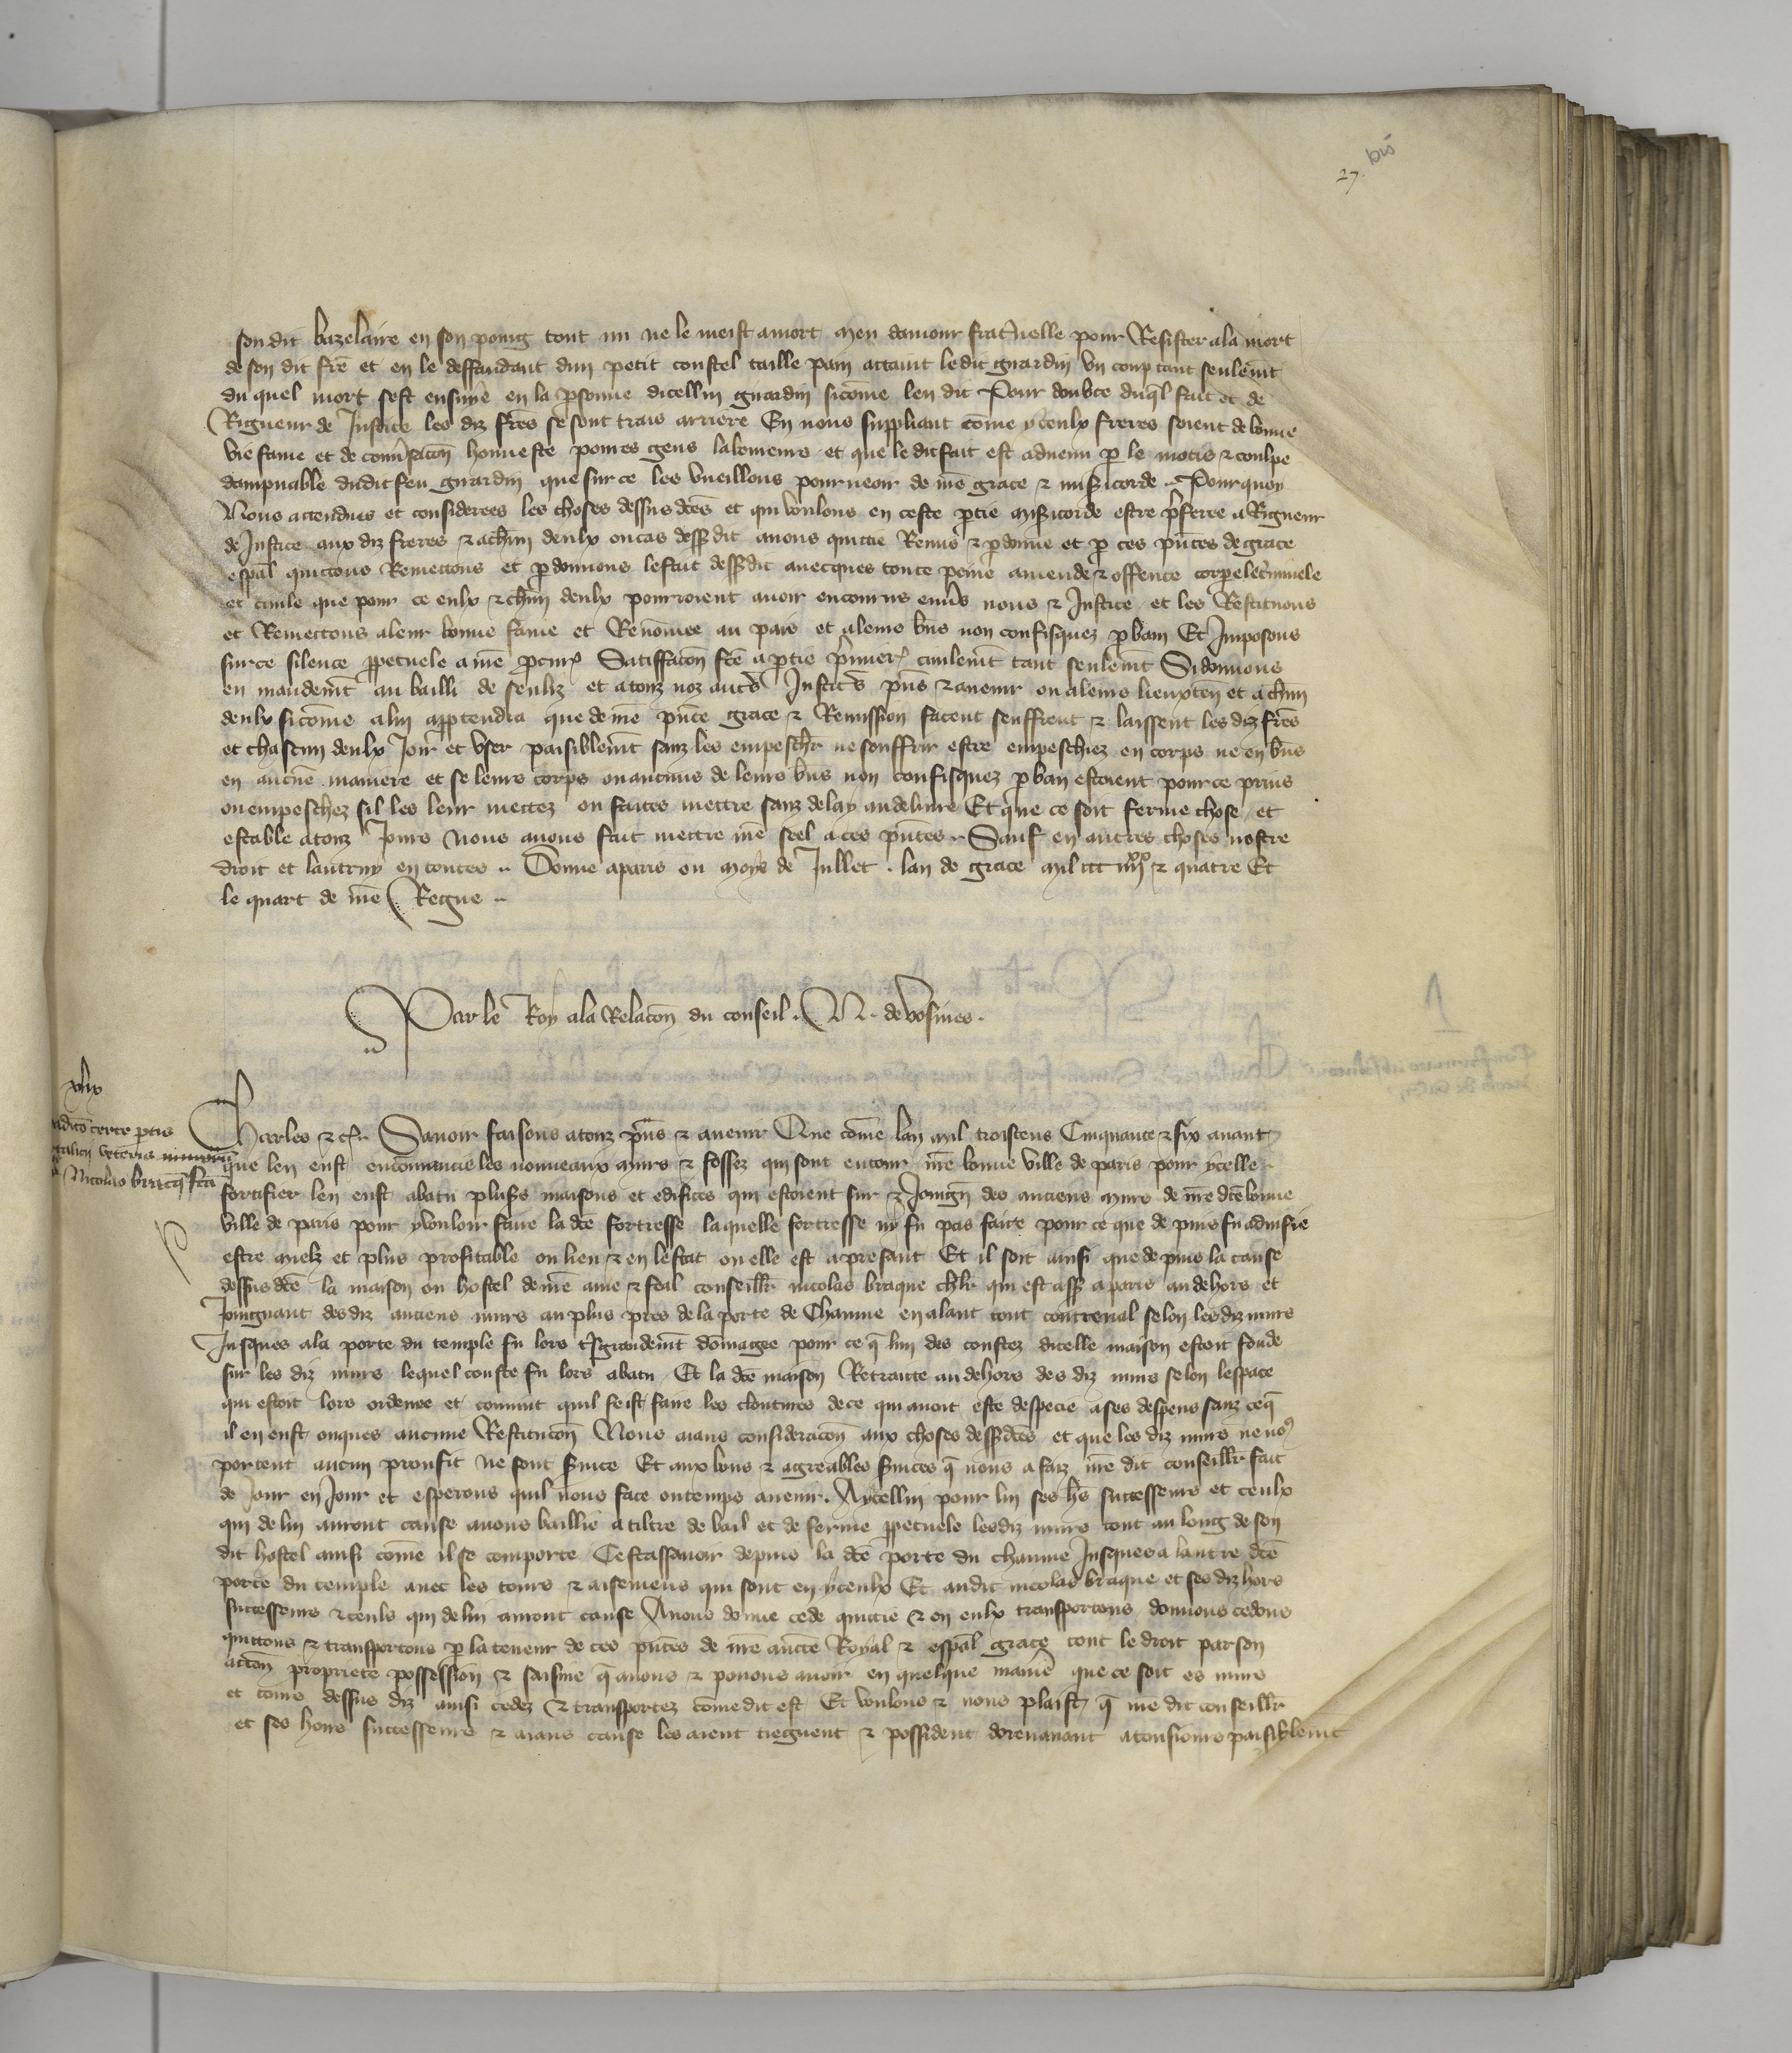 27 bis
son dit bazelaire en son poing tout nu ne le meist a mort meu damour fraternelle pour Resister ala mort
de son dit frē et en le deffendant dun petit coustel taille pain attaint ledit guardin un coup tant seulemēt
du quel mort sest ensuiuē en la psonne dicellui guardin sicōme len dit Pour doubte duql fait et de
Rigueur de Justice les diz frēs se sont trais arriere En nous suppliant cōme yceulx freres soient de bonne
vie fame et de conūsacōn honneste poures gens laboureurs et que le dit fait est aduenu p le motif & coulpe
dampnable dudit feu guardin que sur ce les vueillons pourueoir de nrē grace & misicorde .. Pourquoy
Nous attendues et considerees les choses dessus dcēs et qui voulons en ceste ptie misicorde estre pferee a Rigueur
de Justice aux diz freres & a chūn deulx ou cas dessdit auons quittie Remis & pdonne et p ces pñtes de grace
espāl quittons Remettons et pdonnons le fait dessdit auecques toute peine amende & offence corpele criminele
et ciuile que pour ce eulx & chūn deulx pourroient auoir encourus enūs nous & Justice et les Restituons
et Remettons a leur bonne fame et Renōmee au pais et a leurs bñs non confisquez p ban Et Imposons
sur ce silence ppetuele a nrē pcur Satiffacōn fcē a ptie pmier ciuilemēt tant seulemēt Si donnons
en mandemēt au bailli de senliz et a touz noz autrēs Justiciers pñs & auenir ou a leurs lieuxten̄ et a chūn
deulx sicōme a lui apptendra que de nrē pñte grace & Remission facent seuffrent & laissent les diz frēs
et chascun deulx Joir et vser paisiblemēt sanz les empescher̄ ne souffrir estre empeschiez en corps ne en bñs
en aucūe maniere et se leurs corps ou aucuns de leurs bñs non confisquez p ban estoient pour ce prins
ou empeschez sil les leur mettez ou faites mettre sanz delay au deliure Et que ce soit ferme chose et
estable a touz Jours Nous auons fait mettre nrē seel a ces pñtes .. Sauf en autres choses nostre
droit et lautruy en toutes .. Donne a paris ou moys de Jullet . lan de grace mil ccc iiii xx & quatre Et
le quart de nrē Regne ..
Par le Roy ala Relacōn du conseil . N . de voisines .
xlix
certe ptis
veteris
Nicolao bracq fca
Charles & cr Sauoir faisons a touz pñs & auenir Que cōme lan mil troiscens Cinquante & six auant
que len eust encōmancie les nouueaux murs & fossez qui sont entour nrē bonne ville de paris pour ycelle
fortifier len eust abatu plusrs maisons et edifices qui estoient sur & Joingn̄ des anciens murs de nrē dcē bonne
ville de paris pour y vouloir faire la dcē fortresse laquelle fortresse ny fu pas faite pour ce que de puis fu aduisie
estre mielz et plus profitable ou lieu & en lestat ou elle est a present Et il soit ainsi que de puis la cause
dessus dcē la maison ou hostel de nrē ame & feal conseillr̄ nicolas braque chlr̄ qui est ass a paris au dehors et
Joingnant des diz anciens murs au plus pres de la porte de Chaume en alant tout contreual selon lesdiz murs
Jusques ala porte du temple fu lors tsgrandemēt dōmagee pour ce q lun des coustez dicelle maison estoit fonde
sur les diz murs lequel couste fu lors abatu Et la dcē maison Retraitte au dehors des diz murs selon lespace
qui estoit lors ordenee et conuint quil feist faire les clostures de ce qui auoit este despecie a ses despens sanz ce q
il en eust onques aucune Restitucōn Nous aians consideracōn aux choses dessdcēs et que les diz murs ne no9
portent aucun proufit ne font suice Et aux bons & agreables suices q nous a faiz nrē dit conseillr̄ fait
de Jour en Jour et esperons quil nous face ou temps auenir . A ycellui pour lui ses hs̄ successeurs et ceulx
qui de lui auront cause auons baillie a tiltre de bail et de ferme ppetuele lesdiz murs tout au long de son
dit hostel ainsi cōme il se comporte Cestassauoir depuis la dcē porte du chaume Jusques a lautre dcē
porte du temple auec les tours & aisemens qui sont en yceulx Et audit nicolas braque et ses diz hoirs
successeurs & ceuls qui de lui auront cause Auons donne cede quittie & en eulx transportons donnons cedons
quittons & transportons p la teneur de ces pñtes de nrē aucte Royal & espāl grace tout le droit par son
accōn propriete possession & saisine q auons & pouons auoir en quelque manie que ce soit es murs
et tours dessus diz ainsi cedez & transportez cōme dit est Et voulons & nous plaist q nrē dit conseillr̄
et ses hoirs successeurs & aians cause les aient tiegnent & possident dorenauant a tousiours paisiblemēt